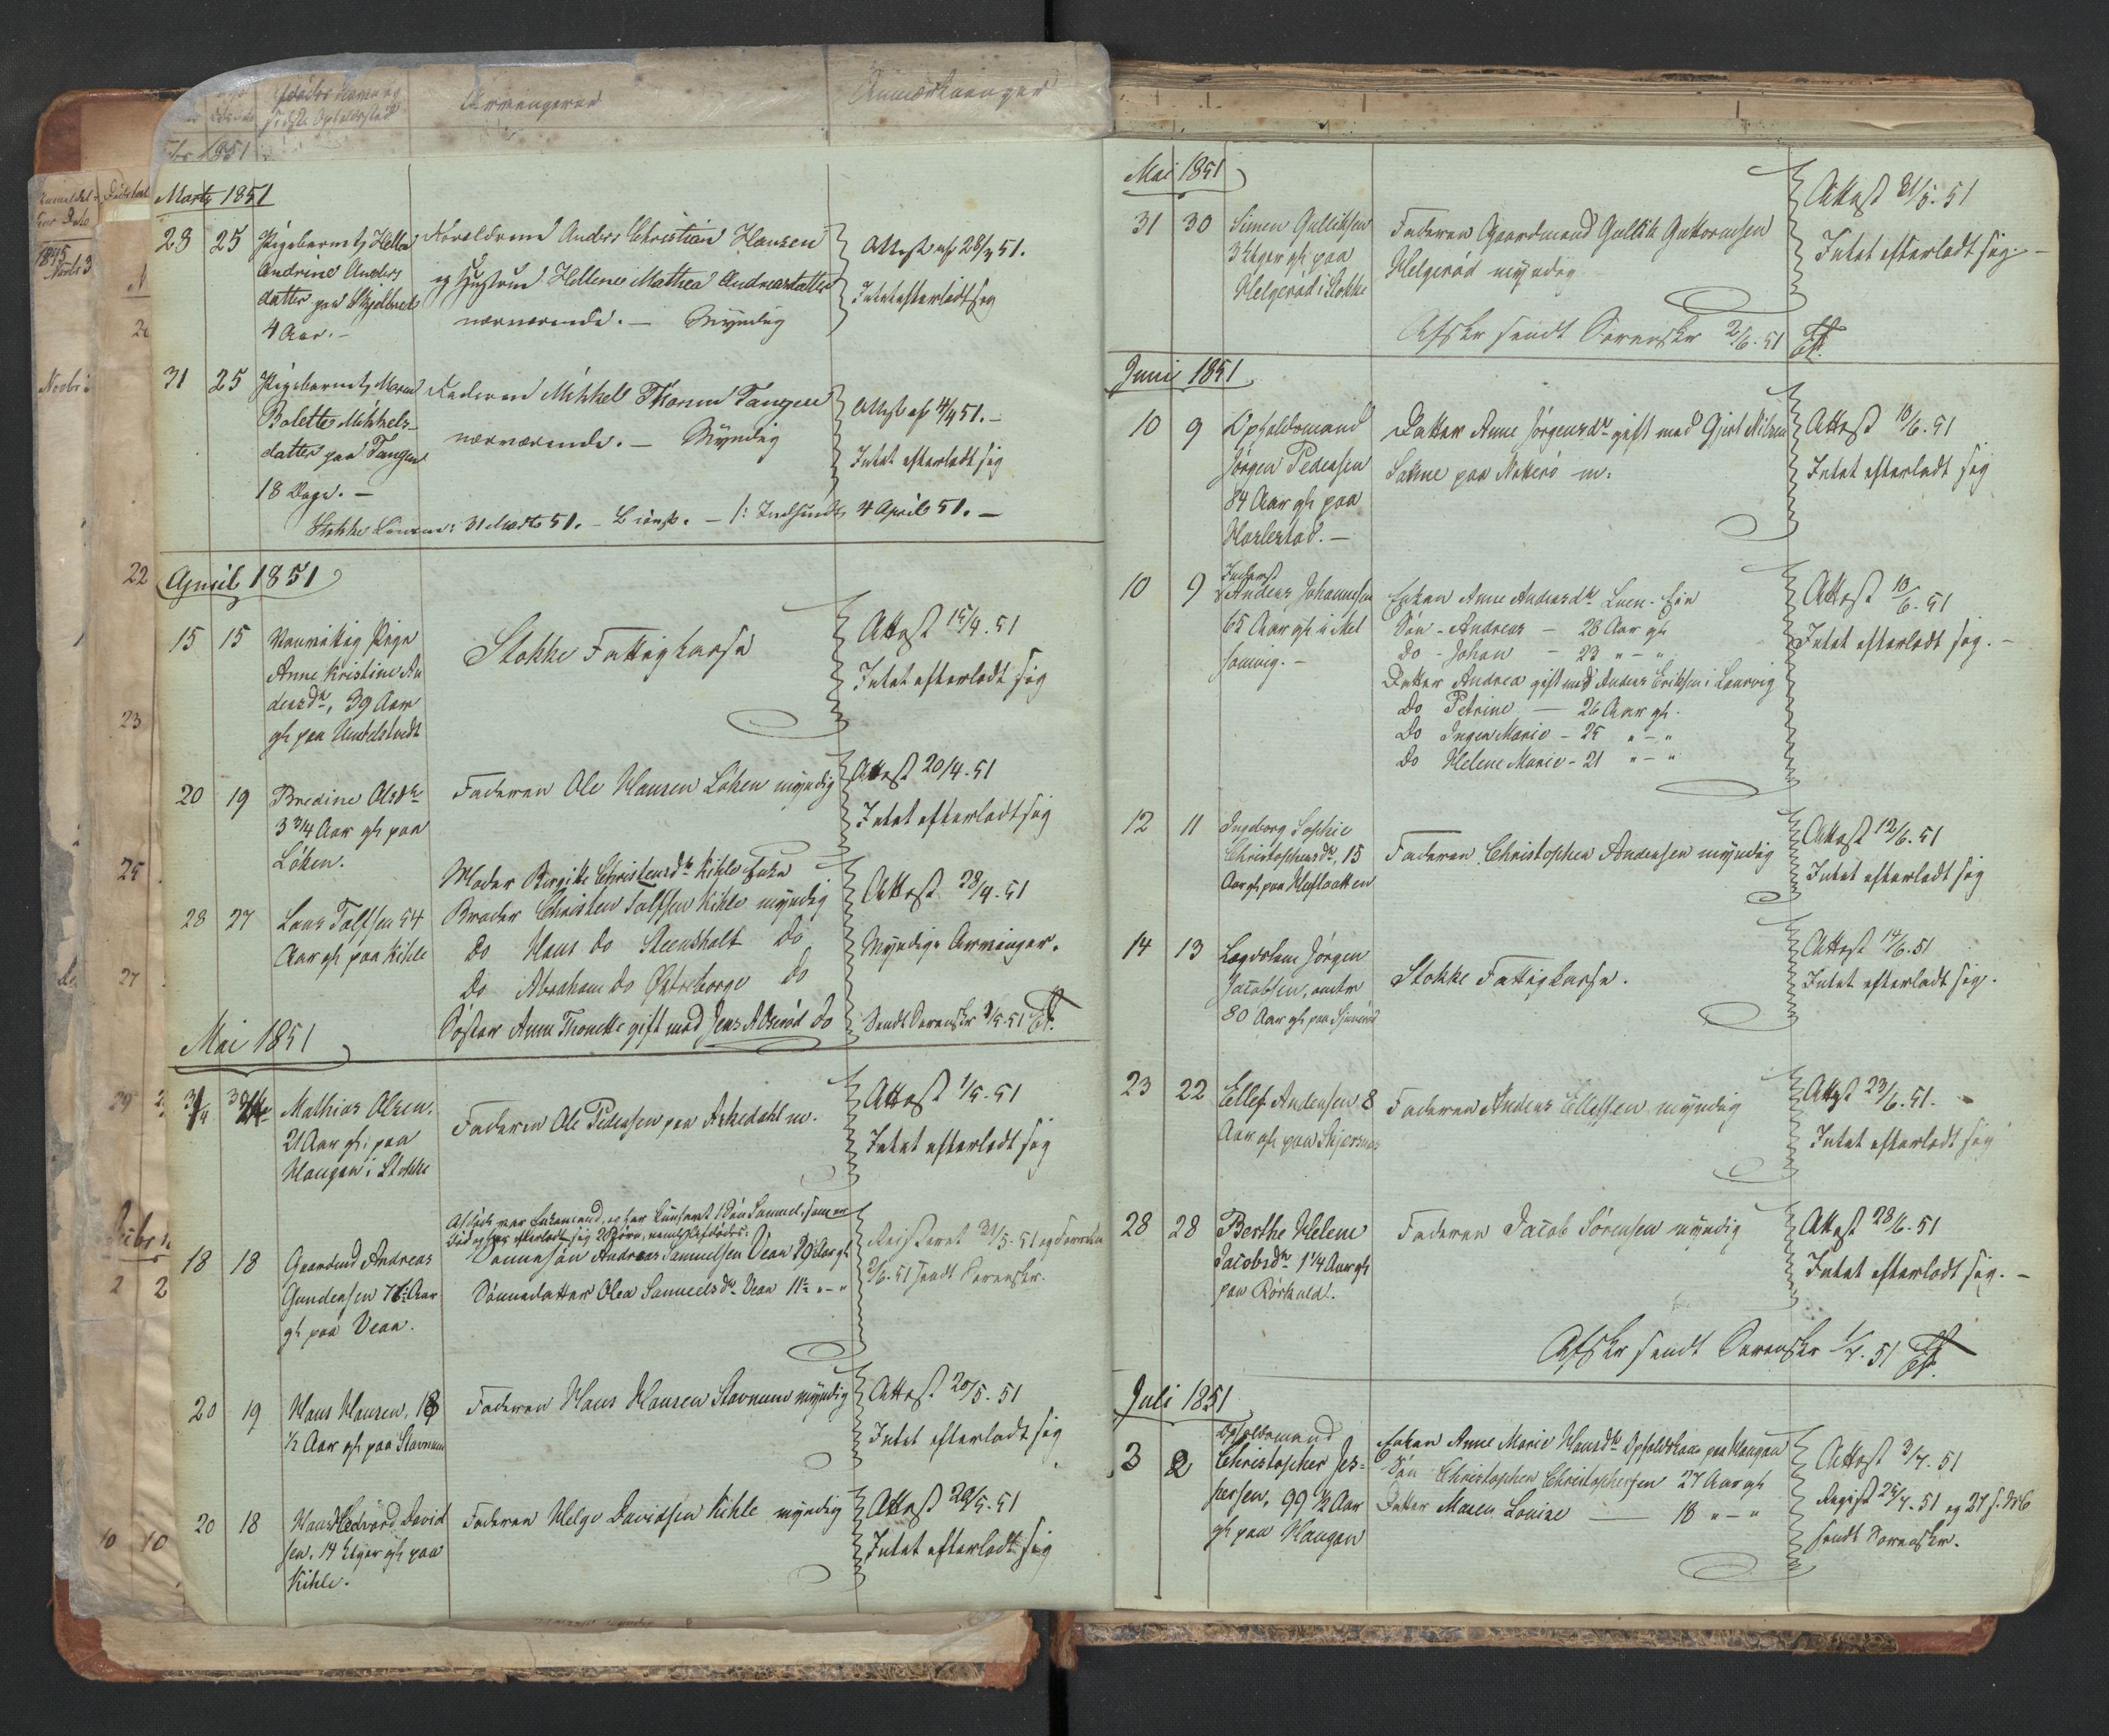 Arvingerne
Anmærkninger
1851
Marts 1851
28 25 Pigebarnet Helle
Andrine Anders
datter paa
4 Aar. —
Forældrene Anders Christian Hansen
og Hustrue Hellene Mathea Andreasdatter
nærværende. — Myndig
Attest af 28/3 51.
Intet efterladt sig
31 25 Pigebarnet Maren
Bolette Mikkels-
datter paa Tangen
18 Dage. —
Faderen Mikkel Thoresen Tangen
nærværende. — Myndig
Attest af 4/4 51. —
Intet efterladt sig
Stokke 31 Marts 51. — Indsendt 4 April 51. —
April 1851
15 15 Vanvittig Pige
Anne Kristine An
dersdr, 39 Aar
gl. paa
Stokke Fattigkasse
Attest 15/4. 51
Intet efterladt sig
20 19 Bredine Olsdr
3 3/4 Aar gl. paa
Løken.
Faderen Ole Hansen Løken myndig
Attest 20/4. 51
Intet efterladt sig
28 27 Lars Tolfsen 54
Aar gl. paa Kihle
Moder Birgitte Christensdr Kihle Enke
Broder Christen Tolfsen Kihle myndig
do Hans do Steensholt do
do Abraham do Østreborge do
Søster Anne Thonette gift med Jens do
Attest 28/4. 51
Myndige Arvinger.
Sendt Sorenskr 2/5. 51
Mai 1851
Mathias Olsen.
21 Aar gl. paa
Haugen i Stokke
Faderen Ole Pedersen paa Askedahl m.
Attest 1/5. 51
Intet efterladt sig
18 18 Gaardmd Andreas
Gundersen 76 Aar
gl. paa Vean.
Afdøde var Enkemand, og har Søn Samuel, som er
død og har efterladt sig 2 Børn, nemlig Afdødes:
Sønnesøn Andreas Samuelsen Vean Aar gl
Sønnedatter Olea Samuelsdr Vean 11 1/2 " — "
Registeret 31/5. 51 og
2/6. 51 sendt Sorenskr.
20 19 Hans Hansen, 18
1/2 Aar gl. paa Stavnum
Faderen Hans Hansen Stavnum myndig
Attest 20/5. 51
Intet efterladt sig
20 18 Hans Edvard David
sen. 14 Uger gl. paa
Kihle.
Faderen Helge Davidsen Kihle myndig
Attest 20/5. 51
Intet efterladt sig
Mai 1851
31 30 Simen Gulliksen
3 Uger gl. paa
Helgerød i Stokke
Faderen Gaardmand Gullik Guttormsen
Helgerød myndig
Attest 31/5. 51
Intet efterladt sig. —
Afskr sendt Sorenskr 2/6. 51
Juni 1851
10 9 Opholdsmand
Jørgen Pedersen
84 Aar gl. paa
Horlestad. —
Datter Anne Jørgensdr gift med Gjert Nilsen
paa Nøtterø m:
Attest 10/6. 51
Intet efterladt sig
10 9 Inderst
Anders Johannesen
65 Aar gl. i Mel
somvig. —
Enken Anne Andersdr
Søn - Andreas — 28 Aar gl.
Do - Johan — 23 " — "
Datter Andrea gift med Anders Eriksen i Laurvig
Do Petrine — 26 Aar gl.
Do Inger Marie - 25 " — "
Do Helene Marie - 21 " — "
Attest 10/6. 51
Intet efterladt sig. —
12 11 Ingeborg Sophie
Christophersdr, 15
Aar gl. paa
Faderen Christopher Andersen myndig
Attest 12/6. 51
Intet efterladt sig
14 13 Lægdslem Jørgen
Jacobsen, omtr
80 Aar gl. paa
Stokke Fattigkasse.
Attest 14/6. 51
Intet efterladt sig.
23 22 Ellef Andersen 8
Aar gl. paa
Faderen Anders Ellefsen myndig
Attest 23/6. 51.
Intet efterladt sig
28 28 Berthe Helene
Jacobsdr 1 1/4 Aar gl
paa Rørkuld.
Faderen Jacob Sørensen myndig
Attest 28/6. 51
Intet efterladt sig. —
Afskr sendt Sorenskr 1/7. 51
Juli 1851
3 2 Opholdsmand
Christopher Jes=
persen, 99 1/2 Aar
gl. paa Haugan
Enken Anne Marie Hansdr paa Haugan
Søn Christopher Christophersen 27 Aar gl
Datter Maren Louise — 18 " — "
Attest 3/7. 51
Regist 25/7. 51 og 27 s. M.
sendt Sorenskr.